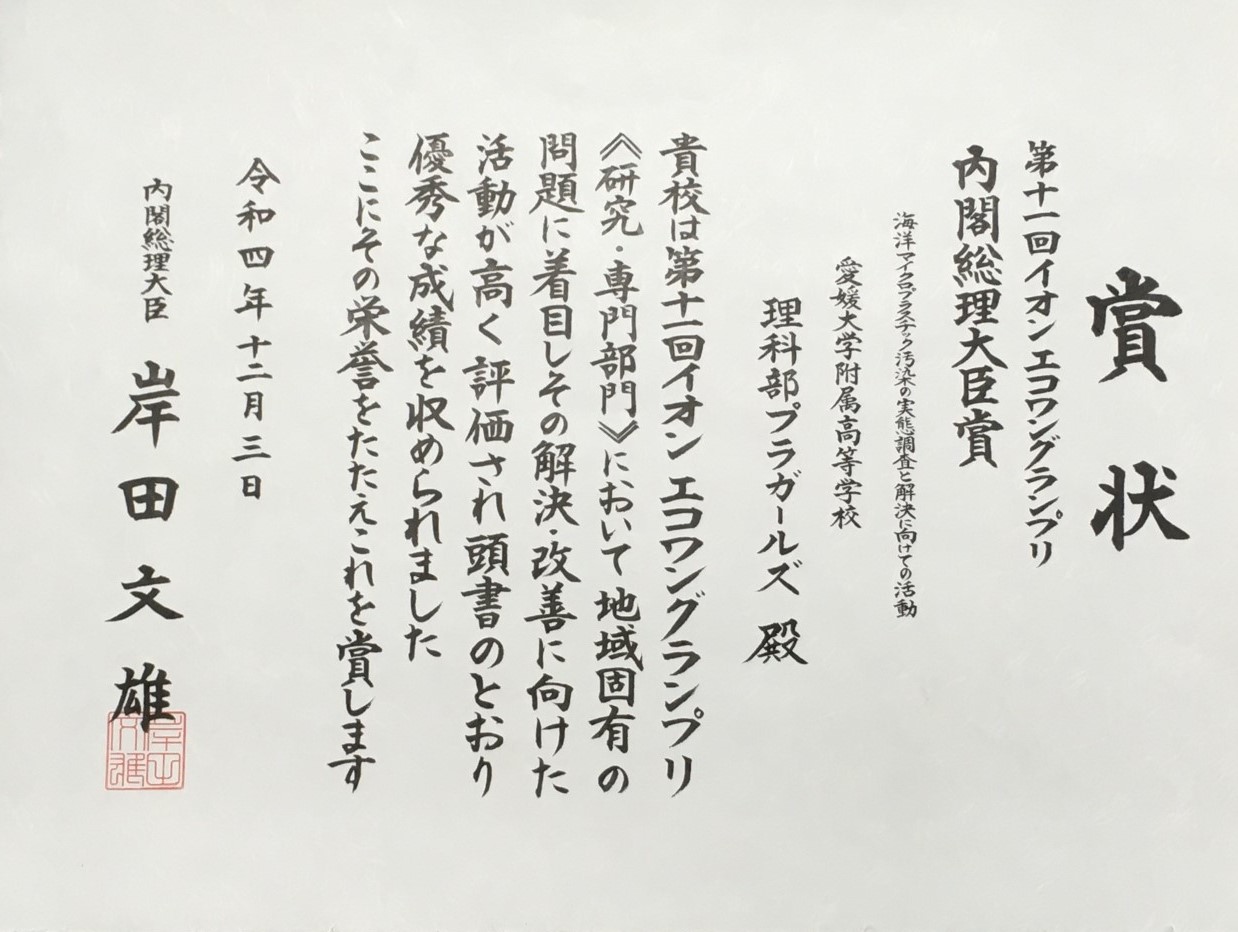 賞状
第十一回イオンエコワングランプリ
内閣総理大臣賞
海洋マイクロプラスチック汚染の実態調査と解決に向けての活動
愛媛大学附属高等学校
理科部プラガールズ 殿
貴校は第十一回イオン エコワングランプリ
《研究・専門部門》において地域固有の
問題に着目しその解決・改善に向けた
活動が高く評価され頭書のとおり
優秀な成績を収められました
ここにその栄誉をたたえこれを賞します
令和四年十二月三日
内閣総理大臣 岸田文雄
岸田
文雄